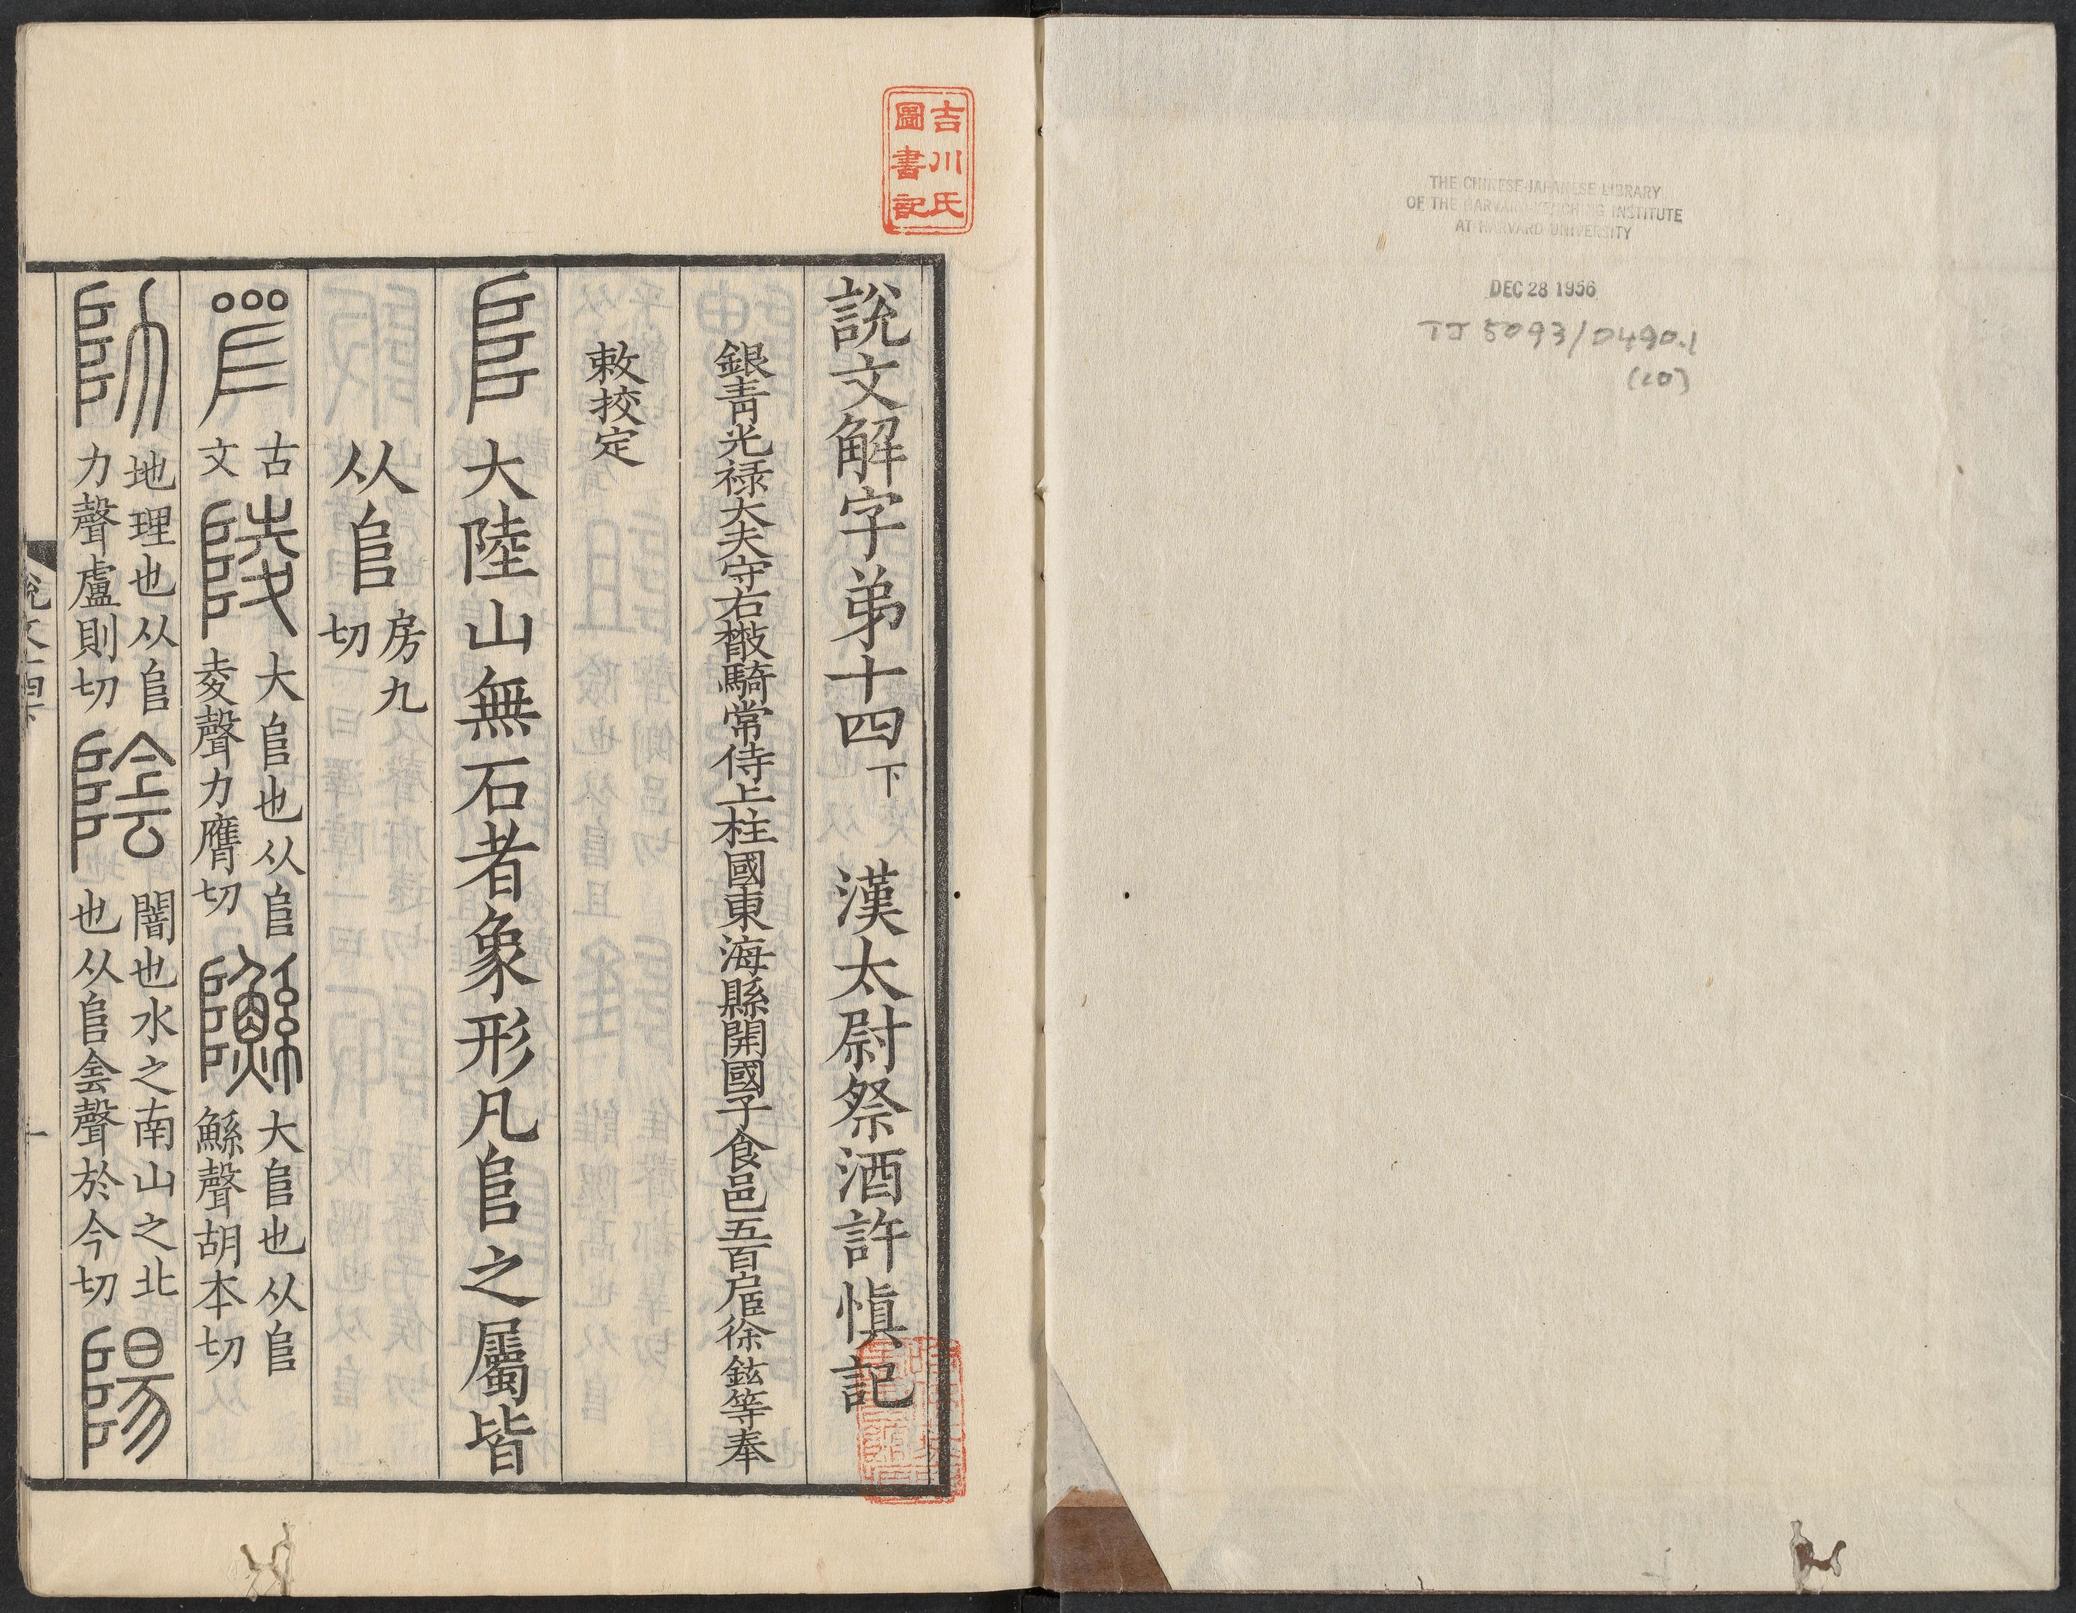 THE CHINESE-JAPANESE LIBRARY
OF THE HARVARD-YENCHING INSTITUTE
AT HARVARD UNIVERSITY
DEC 28 1956
TJ 5093/0490.1
(20)
吉川氏
圖書記
說文解字弟十四下 漢太尉祭酒許慎記
銀青光禄大夫守右㪚騎常侍上柱國東海縣開國子食邑五百户臣徐鉉等奉
敕挍定
𨸏大陸山無石者象形凡𨸏之屬皆
从𨸏房九切
𠼛古文 陵大𨸏也从𨸏夌聲力膺切 䲞大𨸏也从𨸏鯀聲胡本切
阞地理也从𨸏力聲盧則切 陰闇也水之南山之北也从𨸏侌聲於今切 陽
說文十四下
一